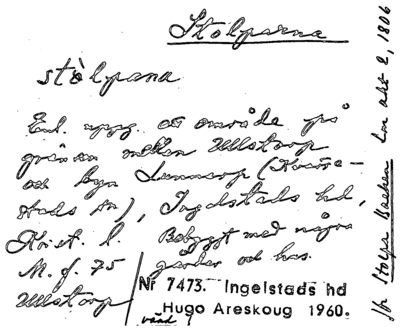 Stolparna
stòlpana
Enl. uppg. ett område på
gränsen mellan Ullstorp
och byn Lunnarp (
stads sn), Ingelstads hd,
Krist. l. Bebyggt med några
gårdar och hus.
M. f. 75
Ullstorp
Nr 7473. Ingelstads hd
Hugo Areskoug 1960.
vänd
Jfr Stolpe Backen Lm akt 2, 1806